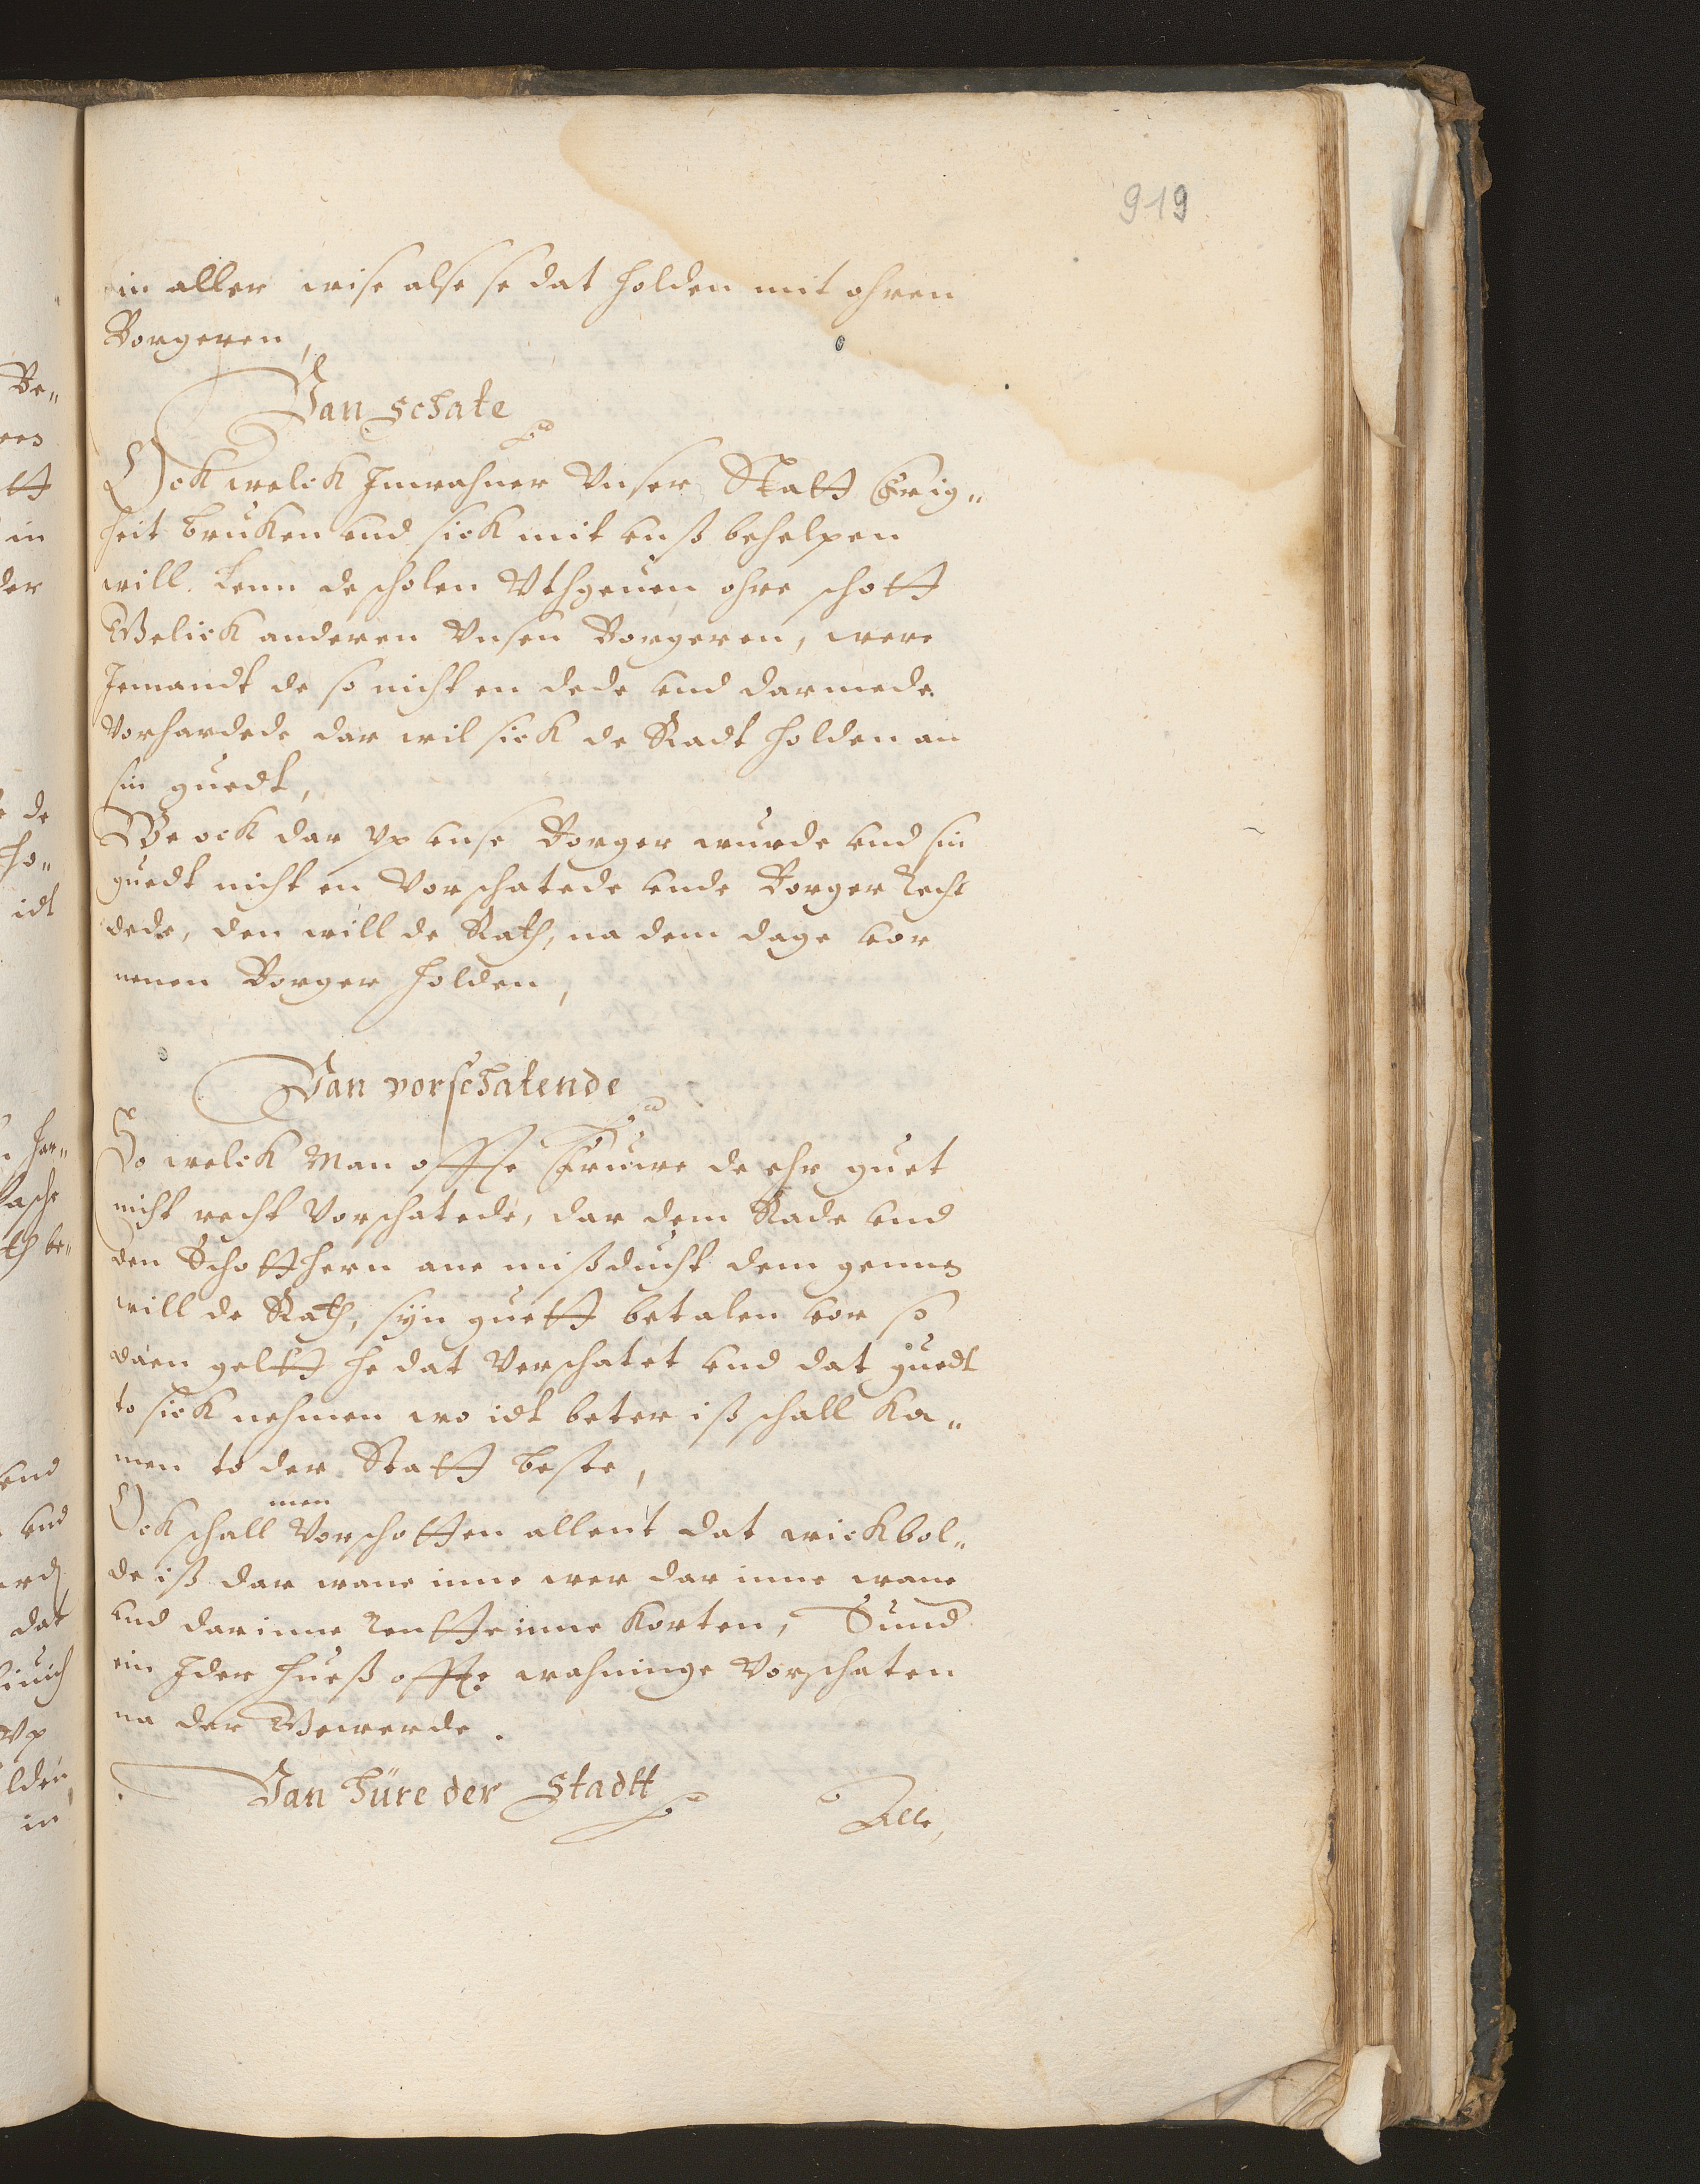 919
in aller wise alse se dat holden mit ohren
Borgeren,
Van schate
Ock welck Inwahner Vnser Statt Frig„
heit bruken vnd sick mit vnß behelpen
will. denn de scholen Vthgeuen ohre schott
Gelick anderen Vnsen Borgeren, were
Jemandt de so nicht en dede vnd darmede
Vorhardede dar wil sick de Radt holden an
sin guedt,
We ock dar vp vnse Borger wurde vnd sin
guedt nicht en Vorschatede vnde Borger Recht
dede, den will de Rath, na dem dage vor
nenen Borger holden,
Van vorschatende
So welck Man offte Fruwe de ehr guet
nicht recht Vorschatede, dar dem Rade vnd
den Schotthern ane mißducht dem gennen
will de Rath, syn guett betalen vor so
daen geltt he dat Verschatet vnd dat guedt
to sick nehmen wo idt beter iß schall ka„
men to der Statt beste,
Ock schall men Vorschotten allent dat wickbol„
de iß dar wane inne wer dar inne wane
vnd darinne Rentte inne korten, Vnnd
ein Jder hueß offte wahninge Vorschaten
na der Gewerde.
Van hüre der Stadtt
Alle,
Be„
tt
in
der
de
ho„
idt
har„
be„
vnd
vnd
dat
Vp
lden,
in